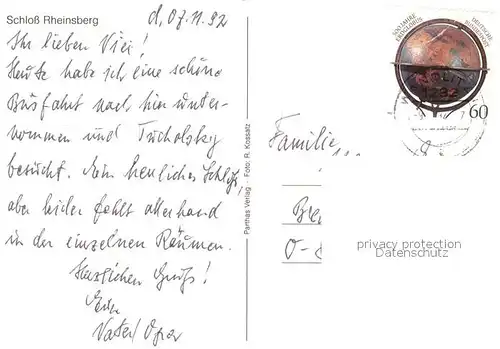 Schloß Rheinsberg
d, 07.11.92
Ihr lieben Vier!
Heute habe ich eine schöne
Busfahrt nach hier unter-
nommen und Tucholsky
besucht. Ein herrliches Schloß,
aber leider fehlt allerhand
in der einzelnen Räumen.
Herzlichen Gruß!
Euer
Vater/Opa
Parthas Verlag - Foto: R. Kossatz
500 JAHRE
ERDGLOBUS
DEUTSCHE
BUNDESPOST
60
Familie
O-
privacy protection
Datenschutz